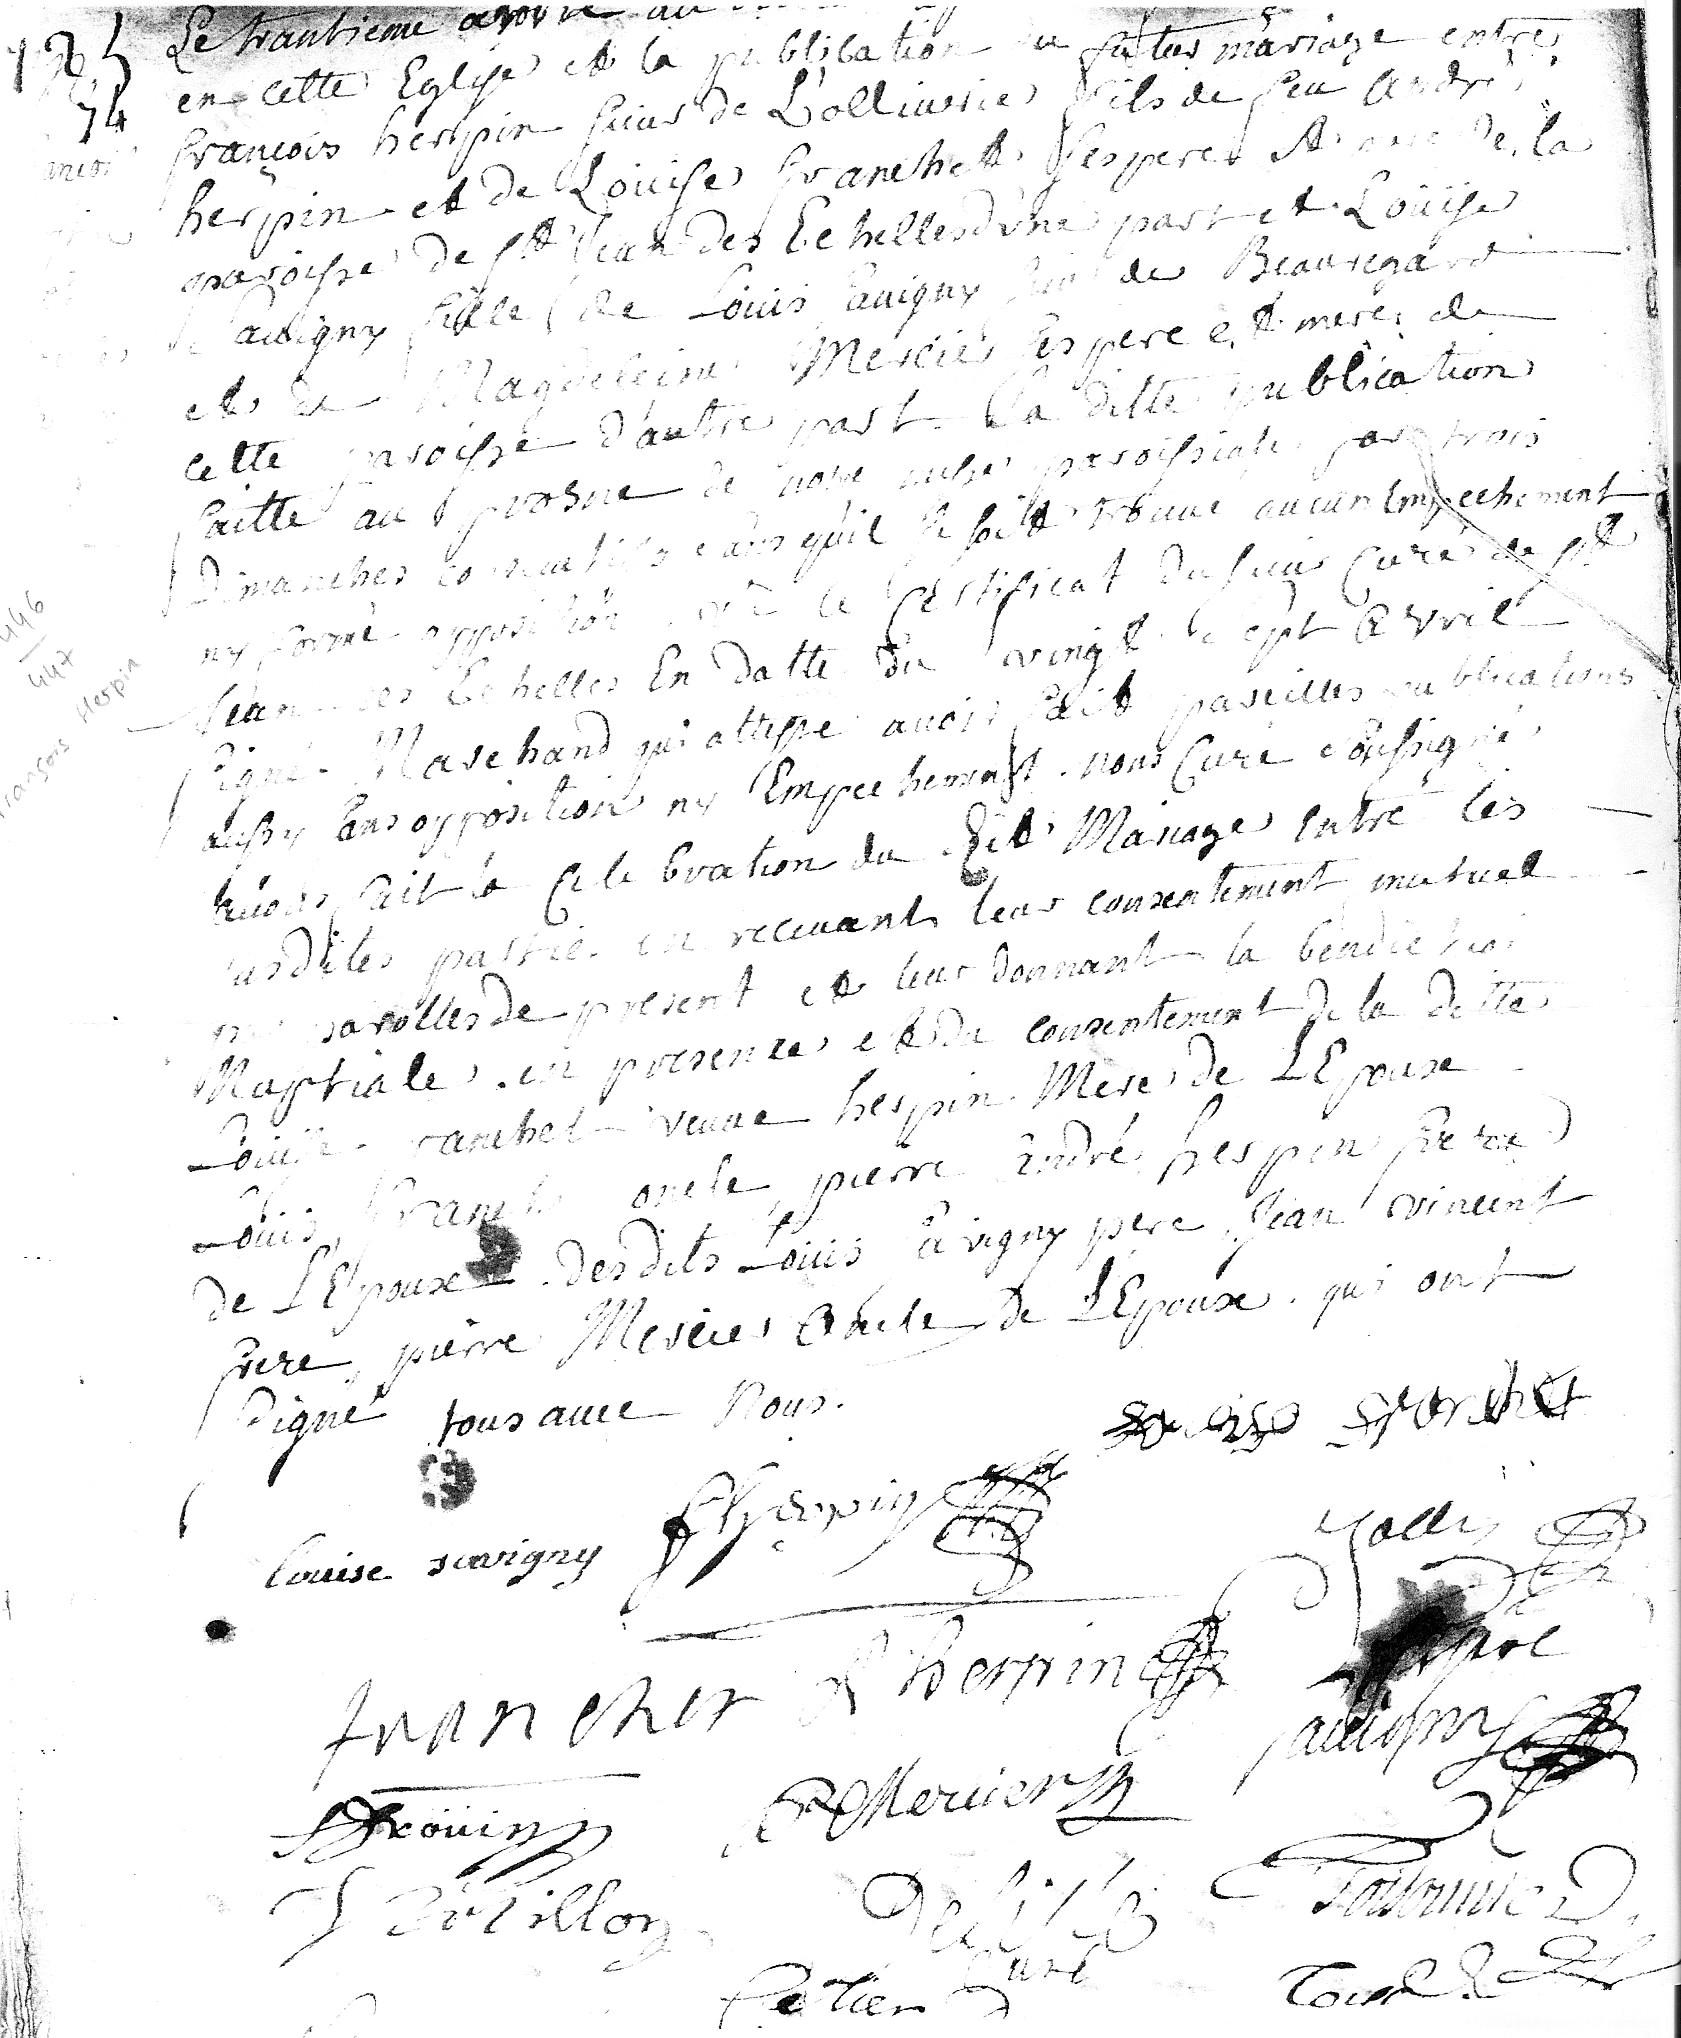 Le trantieme
en cette Eglise et la publication du futur mariage entre
françois herpin sieur de L'olliverie fils de feu André
herpin et de Loüise franchet ses pere et mere de la
paroisse de st Jean des Echelles d'une part et Loüise
Savigny fille de Loüis Savigny sieur de Beauregard
et de Magdeleine Mercier ses pere et mere de
cette paroisse d'autre part la ditte publication
faitte au prosne de notre messe paroissiale par trois
Dimanches consecutifs sans qu'il se soit trouvé aucun Empechement
ny formé opposition, vû le Certificat du sieur Curé de st
Jean des Echelles En datte du vingt sept avril
signé Marchand qui atteste avoir fait pareilles publications
aussy sans opposition ny Empechement. nous Curé soussigné
avons fait la Celebration du dit Mariage entre les
susdites parties en recevant leur consentement mutuel
par parolles de present et leur donnant la benediction
Nuptiale. en presence et du consentement de la ditte
Loüise franchet veuve herpin Mere de L'Epoux
Loüis franchet oncle, pierre André herpin frere
de L'Epoux. desdits Loüis Savigny pere, Jean vincent
frere, pierre Mercier Oncle de L'Epouse. qui ont
signé tous avec Nous.
Louise franchet
f herpin
louise savigny
franchet herpin
savigny
P Mercier
froüin
curé